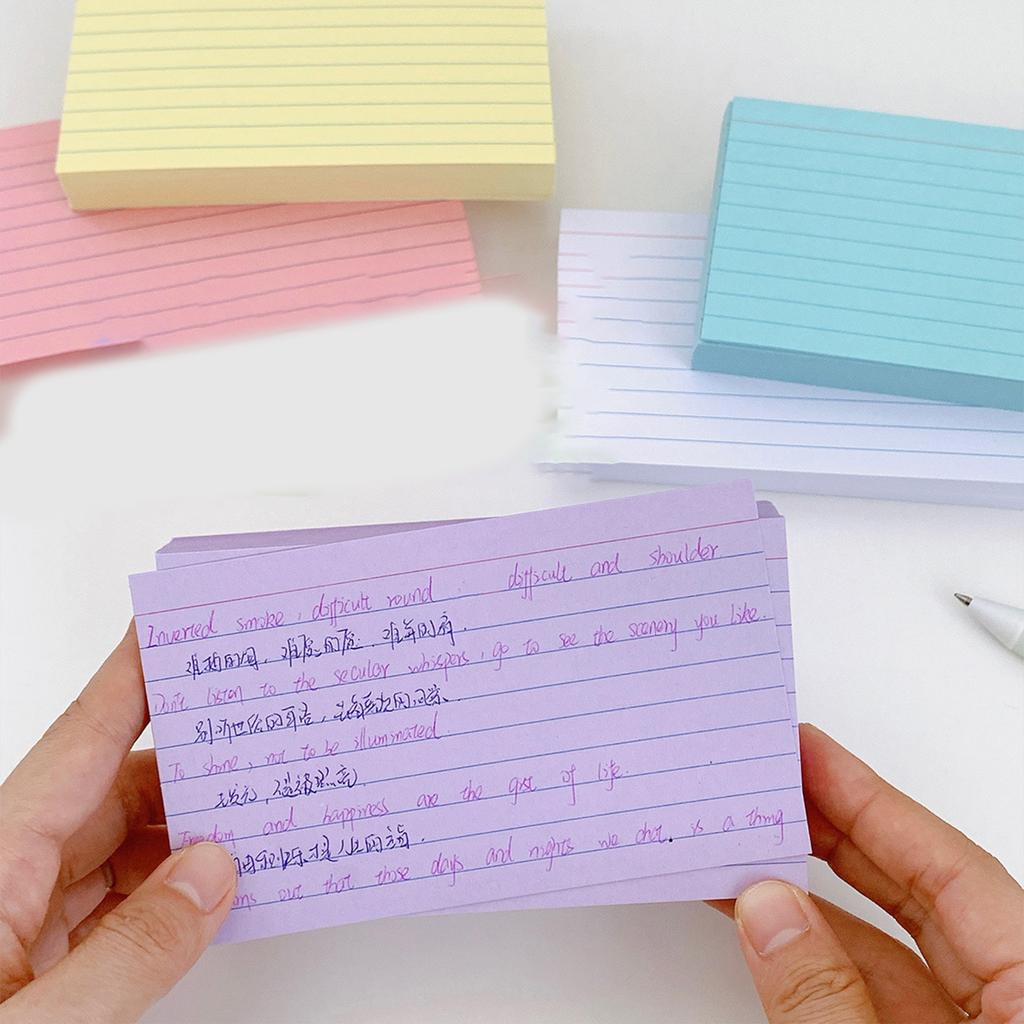 Inverted smoke, difficult round. difficult and shoulder
Don't listen to the secular whispers, go to see the scenery you like.
别听世俗的耳语，去看喜欢的风景
To shine, not to be illuminated.
去发光，而非被照亮
Freedom and happiness are the gist of life.
自由和快乐才是人生的主旨.
out that those days and nights we chat. is a thing